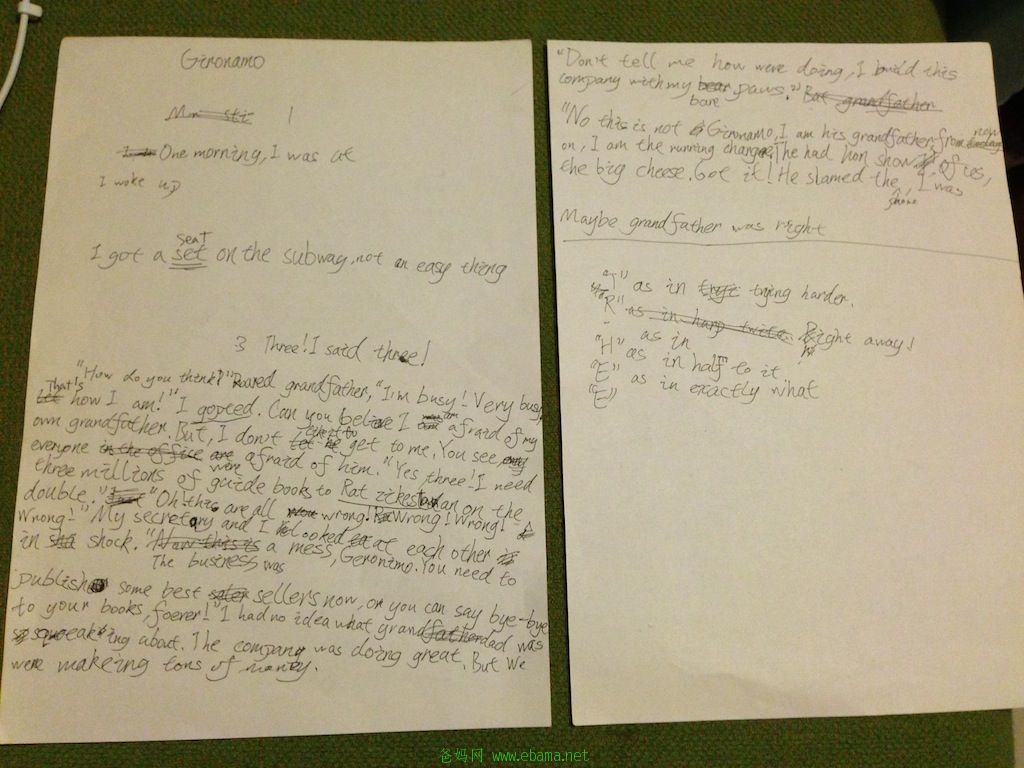 Gironamo
1
One morning, I was at
I woke up
seat
I got a set on the subway, not an easy thing
3 Three! I said three!
"How do you think?" Roared grandfather, "I'm busy! Very busy
That's
how I am!" "I gopted. Can you believe I am afraid of my
own grandfather. But, I don't like it to get to me. You see
everyone in the office are afraid of him. "Yes three! I need
were
three millions of guide books to Rat
double." "Oh! this are all wrong! Wrong! Wrong!
Wrong!" My secretary and I looked at each other
in shock. "Now this is a mess, Geronimo. You need to
The business was
publish some best sellers now, or you can say bye-bye
to your books, foerer!" I had no idea what granddad was
squeaking about. The company was doing great. But We
were makeing tons of
"Don't tell me how were doing, I build this
company with my bear paws." But grandfather
bare
"No this is not Gironamo, I am his grandfather. from now
on, I am the running change, The had hon show of it's,
the big cheese. Got it! He slamed the, I was
phone
Maybe grandfather was right
"T" as in trying harder.
"R" as in harp twice. Right away!
"H" as in
"E" as in half to it
"E" as in exactly what